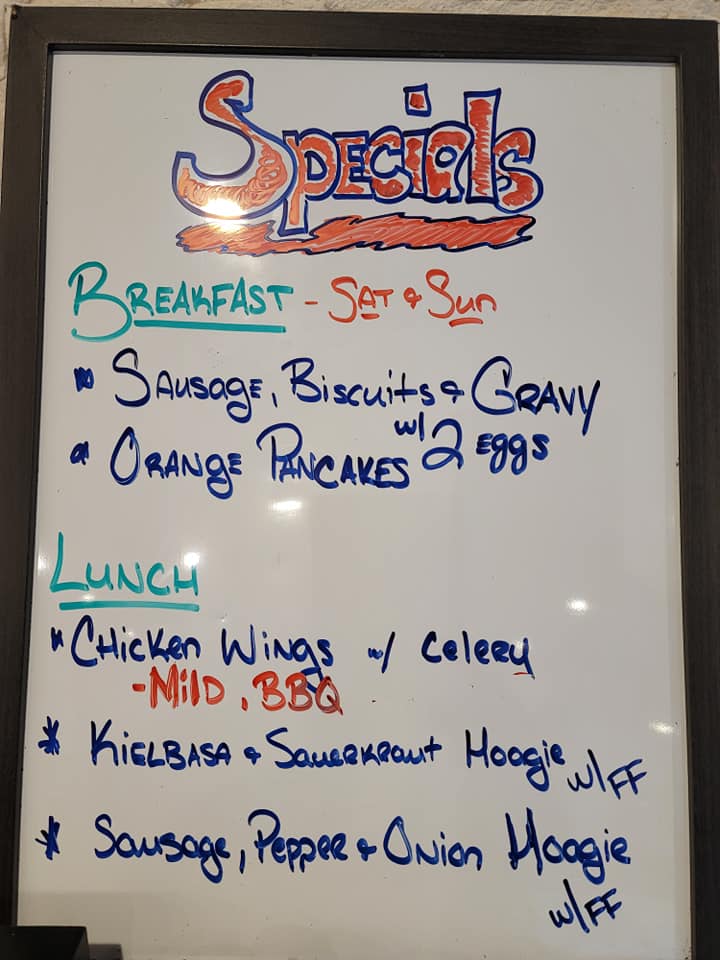 Specials
BREAKFAST - SAT & Sun
* SAUSAGE, Biscuits & GRAVY
w/ 2 EGGS
* ORANGE PANCAKES
LUNCH
* CHicKen WINgS w/ celery
- Mild, BBQ
* KiELBASA & Sauerkraut Hoogie w/FF
* Sausage, PeppeR & Onion Hoogie
w/FF